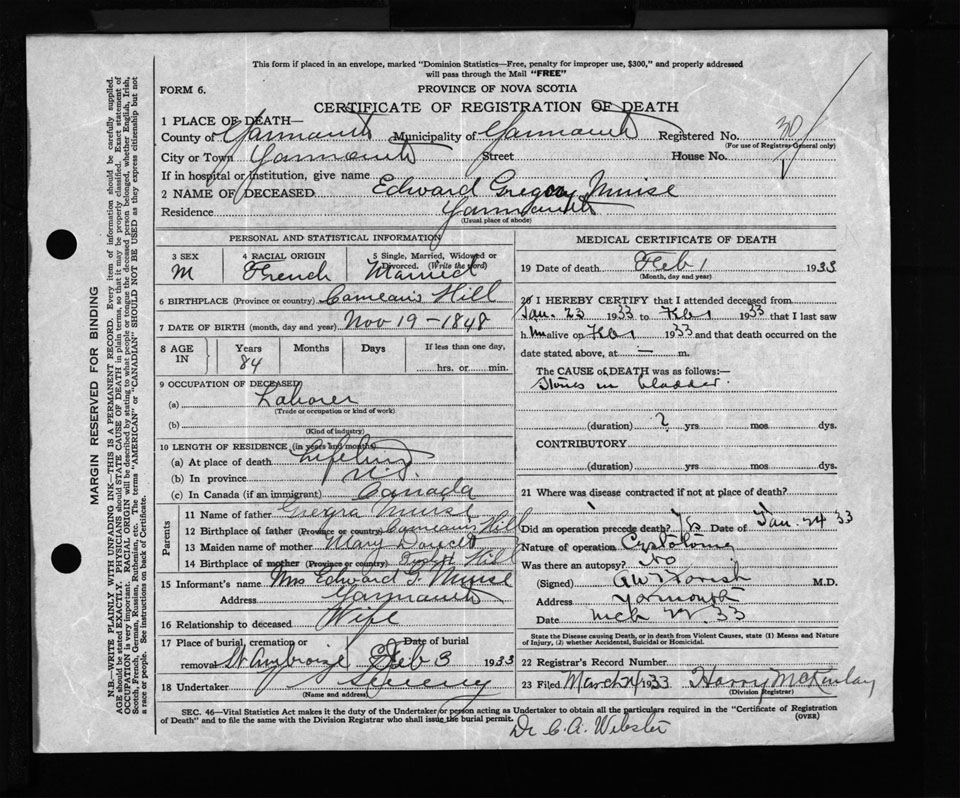 This form if placed in an envelope, marked "Dominion Statistics—Free, penalty for improper use, $300," and properly addressed
will pass through the Mail "FREE"
FORM 6. PROVINCE OF NOVA SCOTIA
CERTIFICATE OF REGISTRATION OF DEATH
1 PLACE OF DEATH—
County of Yarmouth Municipality of Yarmouth Registered No. 30
(For use of Registrar General only)
City or Town Yarmouth Street House No.
If in hospital or institution, give name
2 NAME OF DECEASED Edward Gregory Muise
Residence Yarmouth
(Usual place of abode)
PERSONAL AND STATISTICAL INFORMATION
3 SEX 4 RACIAL ORIGIN 5 Single, Married, Widowed or
Divorced. (Write the word)
M French Married
6 BIRTHPLACE (Province or country) Comeau's Hill
7 DATE OF BIRTH (month, day and year) Nov 19 - 1848
8 AGE IN Years Months Days If less than one day,
84 hrs. or min.
9 OCCUPATION OF DECEASED
(a) Laborer
(Trade or occupation or kind of work)
(b)
(Kind of industry)
10 LENGTH OF RESIDENCE (in years and months)
(a) At place of death Lifetime
(b) In province N.S
(c) In Canada (if an immigrant) Canada
Parents
11 Name of father Muise
12 Birthplace of father (Province or country) Comeau's Hill
13 Maiden name of mother Mary Doucett
14 Birthplace of mother (Province or country) Hill
15 Informant's name Mrs Edward G. Muise
Address Yarmouth
16 Relationship to deceased Wife
17 Place of burial, cremation or Date of burial
removal St Ambroise Feb 3 1933
18 Undertaker Sweeny
(Name and address)
MEDICAL CERTIFICATE OF DEATH
19 Date of death Feb 1 1933
(Month, day and year)
20 I HEREBY CERTIFY that I attended deceased from
Jan. 23 1933 to Feb 1 1933 that I last saw
h im alive on Feb 1 1933 and that death occurred on the
date stated above, at — m.
The CAUSE of DEATH was as follows:
Stones in bladder.
(duration) ? yrs mos dys.
CONTRIBUTORY
(duration) yrs mos dys.
21 Where was disease contracted if not at place of death?
Did an operation precede death? Yes Date of Jan. 24 33
Nature of operation Cystotomy
Was there an autopsy? No
(Signed) M.D.
Address Yarmouth
Date Mch 33
State the Disease causing Death, or in death from Violent Causes, state (1) Means and Nature
of Injury, (2) whether Accidental, Suicidal or Homicidal.
22 Registrar's Record Number
23 Filed March 1933 Harry McKinlay
(Division Registrar)
SEC. 46—Vital Statistics Act makes it the duty of the Undertaker or person acting as Undertaker to obtain all the particulars required in the "Certificate of Registration
of Death" and to file the same with the Division Registrar who shall issue the burial permit. (OVER)
Dr C. A. Webster
MARGIN RESERVED FOR BINDING
N.B.—WRITE PLAINLY WITH UNFADING INK—THIS IS A PERMANENT RECORD. Every item of information should be carefully supplied.
AGE should be stated EXACTLY. PHYSICIANS should STATE CAUSE OF DEATH in plain terms, so that it may be properly classified. Exact statement of
OCCUPATION is very important. RACIAL ORIGIN will be described by stating to what people or tongue the deceased person belonged, whether English, Irish,
Scotch, French, German, Russian, Ruthenian, etc. The terms "AMERICAN" or "CANADIAN" SHOULD NOT BE USED as they express citizenship but not
a race or people. See instructions on back of Certificate.